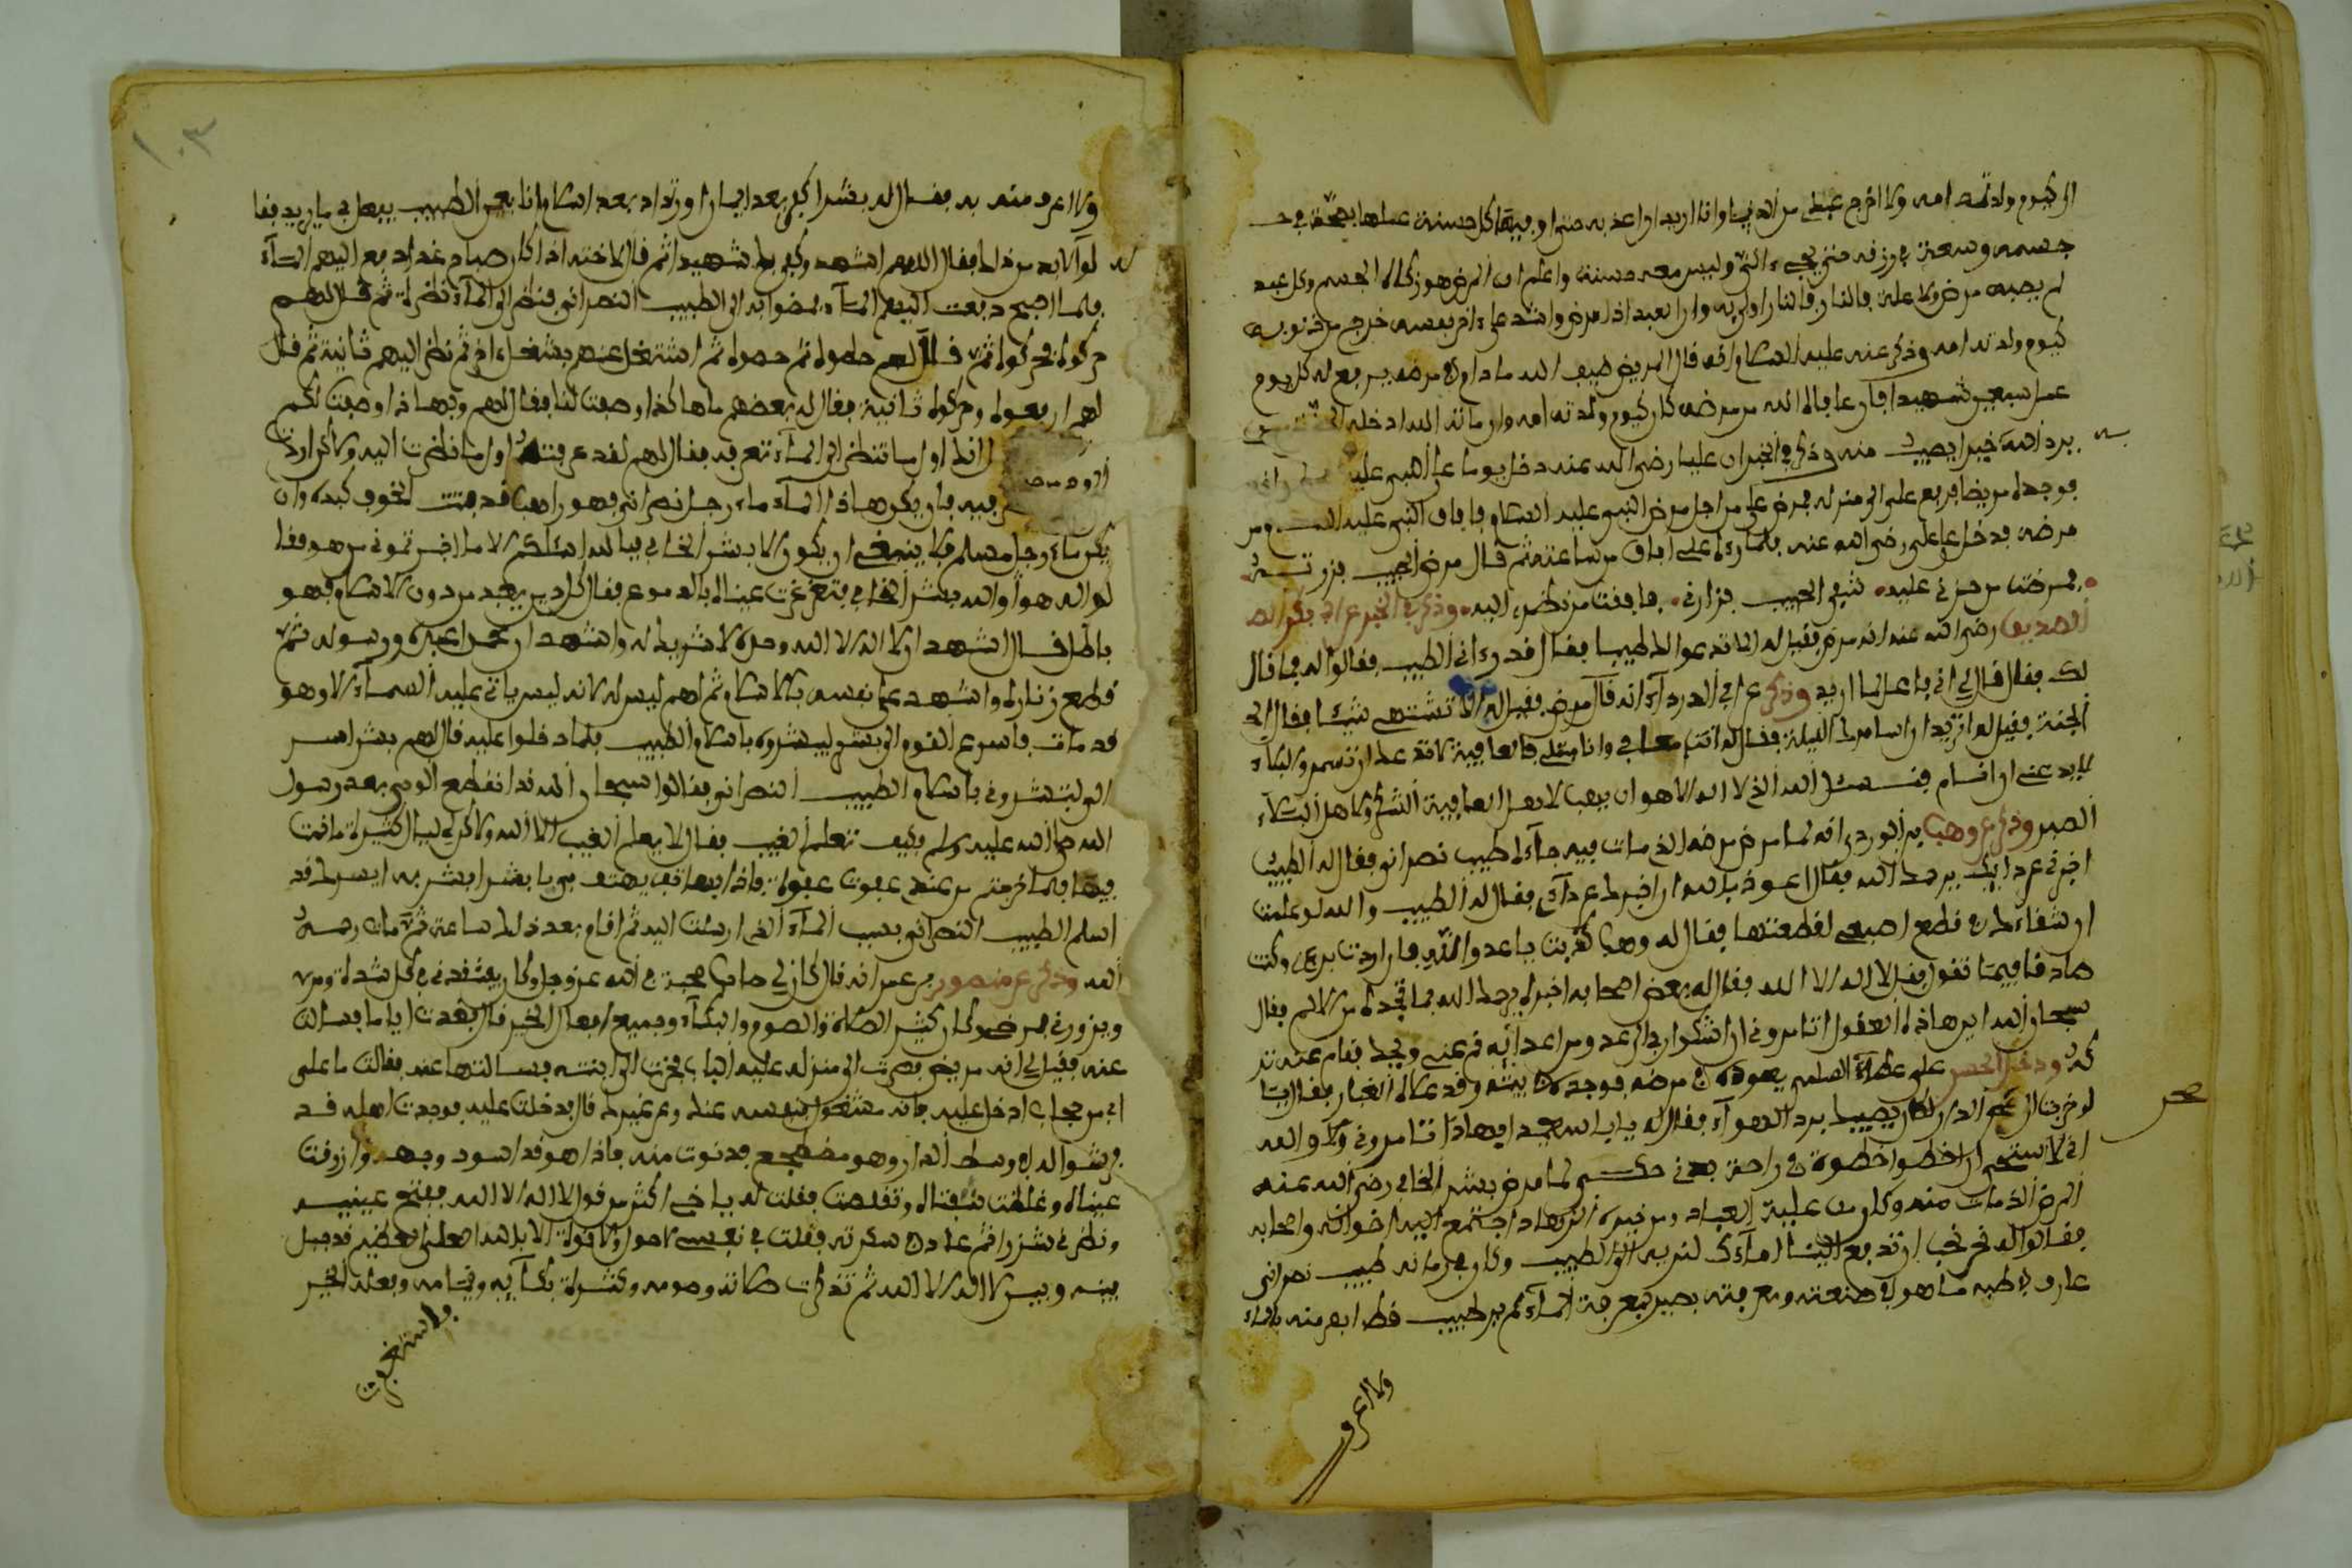 الى كيوم ولدته امه ولا اخرج عبدى من الدنيا وانا اريد ان اعذبه حتى اوفيه كل حسنة عملها بصحة في
جسمه وسعة في رزقه حتى يجيء الي وليس معه حسنة واعلم ان المرض هو زكاة الجسم وكل عبد
لم يصبه مرض ولا علة فالنار فالنار اولى به وان العبد اذا مرض واشتد على اخر نفسه خرج من ذنوبه
كيوم ولدته امه وذكر عنه عليه السلام انه قال المريض ضيف الله ما دام في مرضه يرفع له كل يوم
عمل سبعين شهيدا فان عافاه الله من مرضه كان كيوم ولدته امه وان مات ادخله الجنة
يرد الله خيرا يصيب منه وذكر في الخبر ان عليا رضي الله عنه دخل يوما على النبي عليه
فوجده مريضا فرجع علي الى منزله فمرض علي من اجل مرض النبي عليه السلام فافاق النبي عليه السلام من
مرضه فدخل على علي رضي الله عنه فلما رءاه علي افاق من ساعته ثم قال مرض الحبيب فزرته
فمرضت من حزني عليه شفي الحبيب فزارني فافقت من نظري اليه وذكر في الخبر عن ابي بكر الصد
الصديق رضي الله عنه انه مرض فقيل له الا تدعوا لك طبيبا فقال قد رءاني الطبيب فقالوا له فما قال
لك فقال قال لي اني فاعل لما اريد وذكر عن ابي الدرداء انه قال مرض فقيل له الا تشتهي شيئا فقال الى
الجنة فقيل له اتريد ان اسامرك الليلة فقال له انت معافى وانا مبتلى فالعافية لا تدعك ان تسهر والبلاء
لا يدعني ان انام فنسئل الله الذي لا اله الا هو ان يهب لاهل العافية الشكر ولاهل البلاء
الصبر وذكر عن وهب بن الورد انه لما مرض مرضه الذي مات فيه جاءه طبيب نصراني فقال له الطبيب
اخبرني عن دائك يرحمك الله فقال اعوذ بالله ان اخبرك عن دائي فقال له الطبيب والله لو علمت
ان شفاءك في قطع اصبعي لقطعتها فقال له وهب كذبت يا عدو الله فان اردت برءي وكنت
صادقا فيما تقول فقل لا اله الا الله فقال له بعض اصحابه اخبره يرحمك الله بما تجده من الالم فقال
سبحان الله اين هاذه العقول اتامروني ان اشكوا ربي الى عدو من اعدائه قم عني ويحك فقام عنه
له وذكر الحسن على عطاء السلمي يعوده في مرضه فوجده في بيته وقد علاه الغبار فقال
لو خرجت الى صحن الدار لكان يصيبك برد الهواء فقال له يا ابا سعيد ابهاذا تامروني ولا والله
اني لاستحي ان اخطوا خطوة في راحة بدني حكي لما مرض بشر الحافي رضي الله عنه
المرض الذي مات منه وكان من علية العباد ومن خيرة الزهاد اجتمع اليه اخوانه واصحابه
فقالوا له نحن نحب ان تدفع الينا ماءك لنريه الى الطبيب وكان في زمانه طبيب نصراني
عارف في طبه ماهر في صنعته ومعرفته بصير بمعرفة الماء لم ير طبيب قط ابصر منه بالماء
ولا اعرف
ولا اعرف منه به فقال له بشر اكفر بعد ايمان او ارتداد بعد اسلام انا بعين الطبيب يفعل بي ما يريد فقا
لوا لابد من ذلك فقال اللهم اشهد وكفى بك شهيدا ثم قال لاخته اذا كان صباح غد ادفعي اليهم الماء
فلما اصبح دفعت اليهم الماء فمضوا به الى الطبيب النصراني فنظر الى الماء نظرة ثم قال لهم
حركوه فحركوه ثم قال لهم حطوه ثم حطوه ثم اشتغل عنهم بشغل اخر ثم نظر اليهم ثانية ثم قال
لهم ارفعوه وحركوه ثانية فقال له بعضهم ما هاكذا وصفت لنا فقال لهم وبماذا وصفت لكم
انك اول ما تنظر الى الماء تعرفه فقال لهم لقد عرفته اول ما نظرت اليه ولاكن اردت
فيه فان يكن هاذا الماء ماء رجل نصراني فهو راهب قد فتت الخوف كبده وان
يكن ماء رجل مسلم فلا ينبغي ان يكون الا بشر الحافي فبالله اسئلكم الا ما اخبرتموني من هو فقا
لوا له هو والله بشر الحافي فتغرغرت عيناه بالدموع فقال كل دين يعبد من دون الاسلام فهو
باطل فقال اشهد ان لا اله الا الله وحده لا شريك له واشهد ان محمدا عبده ورسوله ثم
قطع زناره واشهد على نفسه بالاسلام ثم اهم ليس له لانه ليس ياتي عليه المساء الا وهو
قد مات فاسرع القوم الى بشر ليبشروه باسلام الطبيب فلما دخلوا عليه قال لهم بشر
الي تبشروني باسلام الطبيب النصراني فقالوا سبحان الله قد انقطع الوحي بعد رسول
الله صلى الله عليه وسلم فكيف تعلم الغيب فقال لا يعلم الغيب الا الله ولاكن لي ليال كثيرة ما نمت
فيها فلما خرجتم من عندي غفوت غفوة فاذا بهاتف يهتف بي يا بشر ابشر فقد
اسلم الطبيب النصراني بسبب الماء الذي ارسلت اليه ثم اقام بعد ذلك ساعة ثم مات رحمه
الله وذكر عن منصور بن عمر انه قال كان لي صاحب محبة في الله عز وجل وكان يعتقدني في كل شدة ومن
ويزورني في مرضي وكان كثير الصلاة والصوم والبكاء وجميع افعال الخير قال ففقدته اياما فسالت
عنه فقيل لي انه مريض فصرت الى منزله عليه الباب فخرجت الي ابنته فسالتها عنه فقالت ما على
ابي من حجاب ادخل عليه فانه مشغول بنفسه عنك وعن غيرك قال فدخلت عليه فوجدت اهله قد
فرشوا له في وسط الدار وهو مضطجع فدنوت منه فاذا هو قد اسود وجهه وازرقت
عيناه وغلظت شفتاه وتقلصت فقلت له يا اخي اكثر من قول لا اله الا الله ففتح عينيه
ونظرني شزرا ثم عاد في سكرته فقلت في نفسي لا حول ولا قوة الا بالله العلي العظيم قد حيل
بينه وبين لا اله الا الله ثم تذكرت صلاته وصومه وكثرة بكائه وقيامه وفعله الخير
١٠٣